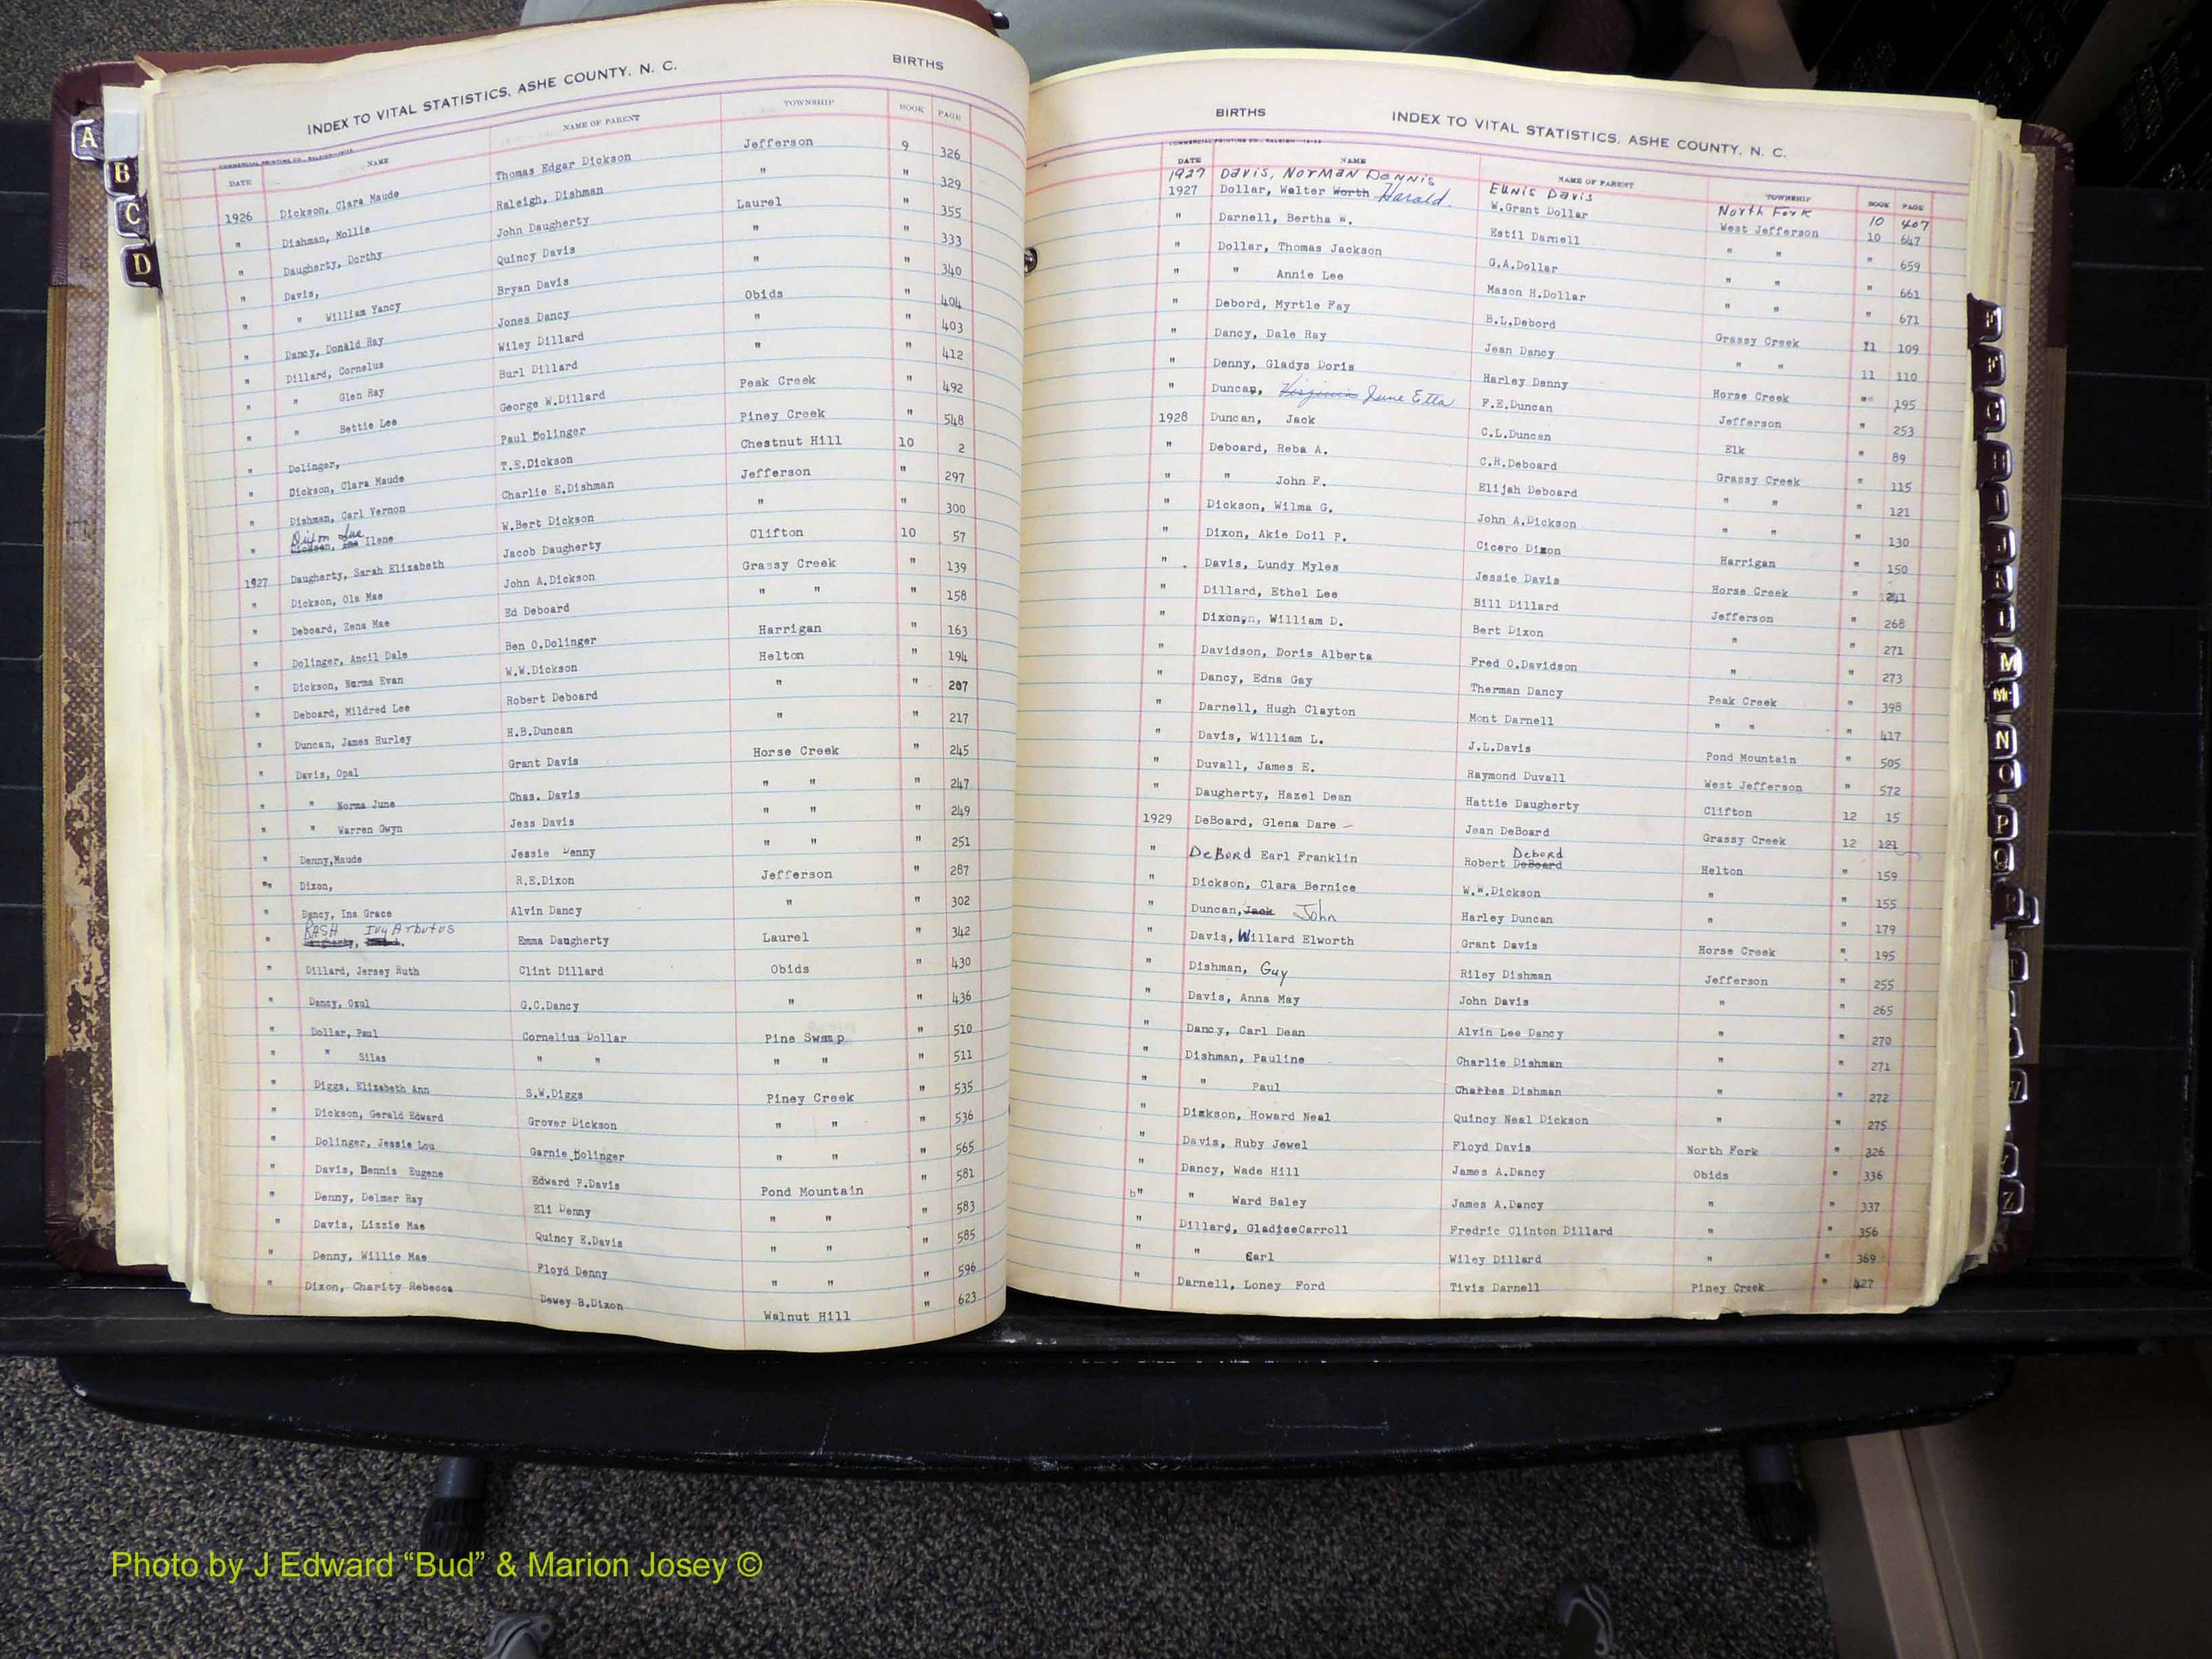 INDEX TO VITAL STATISTICS, ASHE COUNTY, N. C. BIRTHS
DATE NAME NAME OF PARENT TOWNSHIP BOOK PAGE
1926 Dickson, Clara Maude Thomas Edgar Dickson Jefferson 9 326
" Dishman, Mollie Raleigh, Dishman " " 329
" Daugherty, Dorthy John Daugherty Laurel " 355
" Davis, Quincy Davis " " 333
" " William Yancy Bryan Davis " " 340
" Dancy, Donald Ray Jones Dancy Obids " 404
" Dillard, Cornelus Wiley Dillard " " 403
" " Glen Ray Burl Dillard " " 412
" " Bettie Lee George W.Dillard Peak Creek " 492
" Dolinger, Paul Dolinger Piney Creek " 548
" Dickson, Clara Maude T.E.Dickson Chestnut Hill 10 2
" Dishman, Carl Vernon Charlie E.Dishman Jefferson " 297
" Dixon Ilene W.Bert Dickson " " 300
1927 Daugherty, Sarah Elizabeth Jacob Daugherty Clifton 10 57
" Dickson, Ola Mae John A.Dickson Grassy Creek " 139
" Deboard, Zena Mae Ed Deboard " " " 158
" Dolinger, Ancil Dale Ben O.Dolinger Harrigan " 163
" Dickson, Norma Evan W.W.Dickson Helton " 194
" Deboard, Mildred Lee Robert Deboard " " 207
" Duncan, James Hurley H.B.Duncan " " 217
" Davis, Opal Grant Davis Horse Creek " 245
" " Norma June Chas. Davis " " " 247
" " Warren Gwyn Jess Davis " " " 249
" Denny,Maude Jessie Denny " " " 251
"" Dixon, R.E.Dixon Jefferson " 287
" Dancy, Ina Grace Alvin Dancy " " 302
" RASH Ivy Arbutus Emma Daugherty Laurel " 342
" Dillard, Jersey Ruth Clint Dillard Obids " 430
" Dancy, Ozul G.C.Dancy " " 436
" Dollar, Paul Cornelius Dollar Pine Swamp " 510
" " Silas " " " " " 511
" Diggs, Elizabeth Ann S.W.Diggs Piney Creek " 535
" Dickson, Gerald Edward Grover Dickson " " " 536
" Dolinger, Jessie Lou Garnie Dolinger " " " 565
" Davis, Dennis Eugene Edward P.Davis Pond Mountain " 581
" Denny, Delmer Ray Eli Denny " " " 583
" Davis, Lizzie Mae Quincy E.Davis " " " 585
" Denny, Willie Mae Floyd Denny " " " 596
" Dixon, Charity Rebecca Dewey B.Dixon Walnut Hill " 623
BIRTHS INDEX TO VITAL STATISTICS, ASHE COUNTY, N. C.
DATE NAME NAME OF PARENT TOWNSHIP BOOK PAGE
1927 Davis, Norman Dennis Eunis Davis North Fork 10 407
1927 Dollar, Walter Worth Harald. W.Grant Dollar West Jefferson 10 647
" Darnell, Bertha W. Estil Darnell " " " 659
" Dollar, Thomas Jackson G.A.Dollar " " " 661
" " Annie Lee Mason H.Dollar " " " 671
" Debord, Myrtle Fay B.L.Debord Grassy Creek 11 109
" Dancy, Dale Ray Jean Dancy " " 11 110
" Denny, Gladys Doris Harley Denny Horse Creek " 195
" Duncan, Virginia June Etta F.E.Duncan Jefferson " 253
1928 Duncan, Jack C.L.Duncan Elk " 89
" Deboard, Reba A. C.R.Deboard Grassy Creek " 115
" " John F. Elijah Deboard " " " 121
" Dickson, Wilma G. John A.Dickson " " " 130
" Dixon, Akie Doil P. Cicero Dixon Harrigan " 150
" Davis, Lundy Myles Jessie Davis Horse Creek " 241
" Dillard, Ethel Lee Bill Dillard Jefferson " 268
" Dixonyn, William D. Bert Dixon " " 271
" Davidson, Doris Alberta Fred O.Davidson " " 273
" Dancy, Edna Gay Therman Dancy Peak Creek " 398
" Darnell, Hugh Clayton Mont Darnell " " " 417
" Davis, William L. J.L.Davis Pond Mountain " 505
" Duvall, James E. Raymond Duvall West Jefferson " 572
" Daugherty, Hazel Dean Hattie Daugherty Clifton 12 15
1929 DeBoard, Glena Dare Jean DeBoard Grassy Creek 12 121
" DeBord Earl Franklin Robert DeBoard Debord Helton " 159
" Dickson, Clara Bernice W.W.Dickson " " 155
" Duncan, Jack John Harley Duncan " " 179
" Davis, Willard Elworth Grant Davis Horse Creek " 195
" Dishman, Guy Riley Dishman Jefferson " 255
" Davis, Anna May John Davis " " 265
" Dancy, Carl Dean Alvin Lee Dancy " " 270
" Dishman, Pauline Charlie Dishman " " 271
" " Paul Charles Dishman " " 272
" Dickson, Howard Neal Quincy Neal Dickson " " 275
" Davis, Ruby Jewel Floyd Davis North Fork " 326
" Dancy, Wade Hill James A.Dancy Obids " 336
b" " Ward Baley James A.Dancy " " 337
" Dillard, GladiceCarroll Fredric Clinton Dillard " " 356
" " Earl Wiley Dillard " " 369
" Darnell, Loney Ford Tivis Darnell Piney Creek " 427
A
B
C
D
M
Mc
N
O
P
Q
R
T
W
Z
Photo by J Edward “Bud” & Marion Josey ©